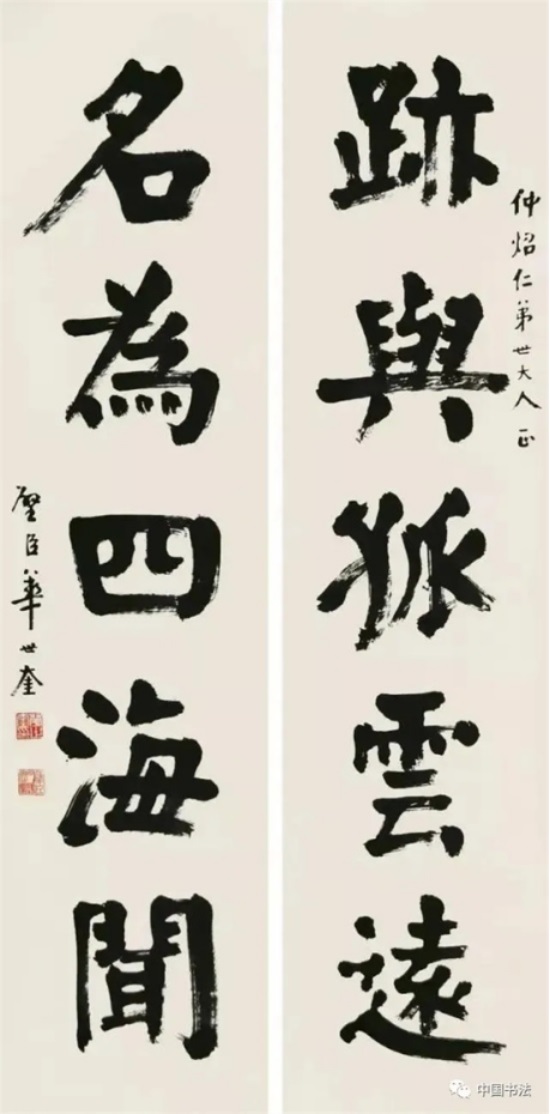 跡與孤雲遠
仲炤仁弟世大人正
名為四海聞
璧臣華世奎
中国书法